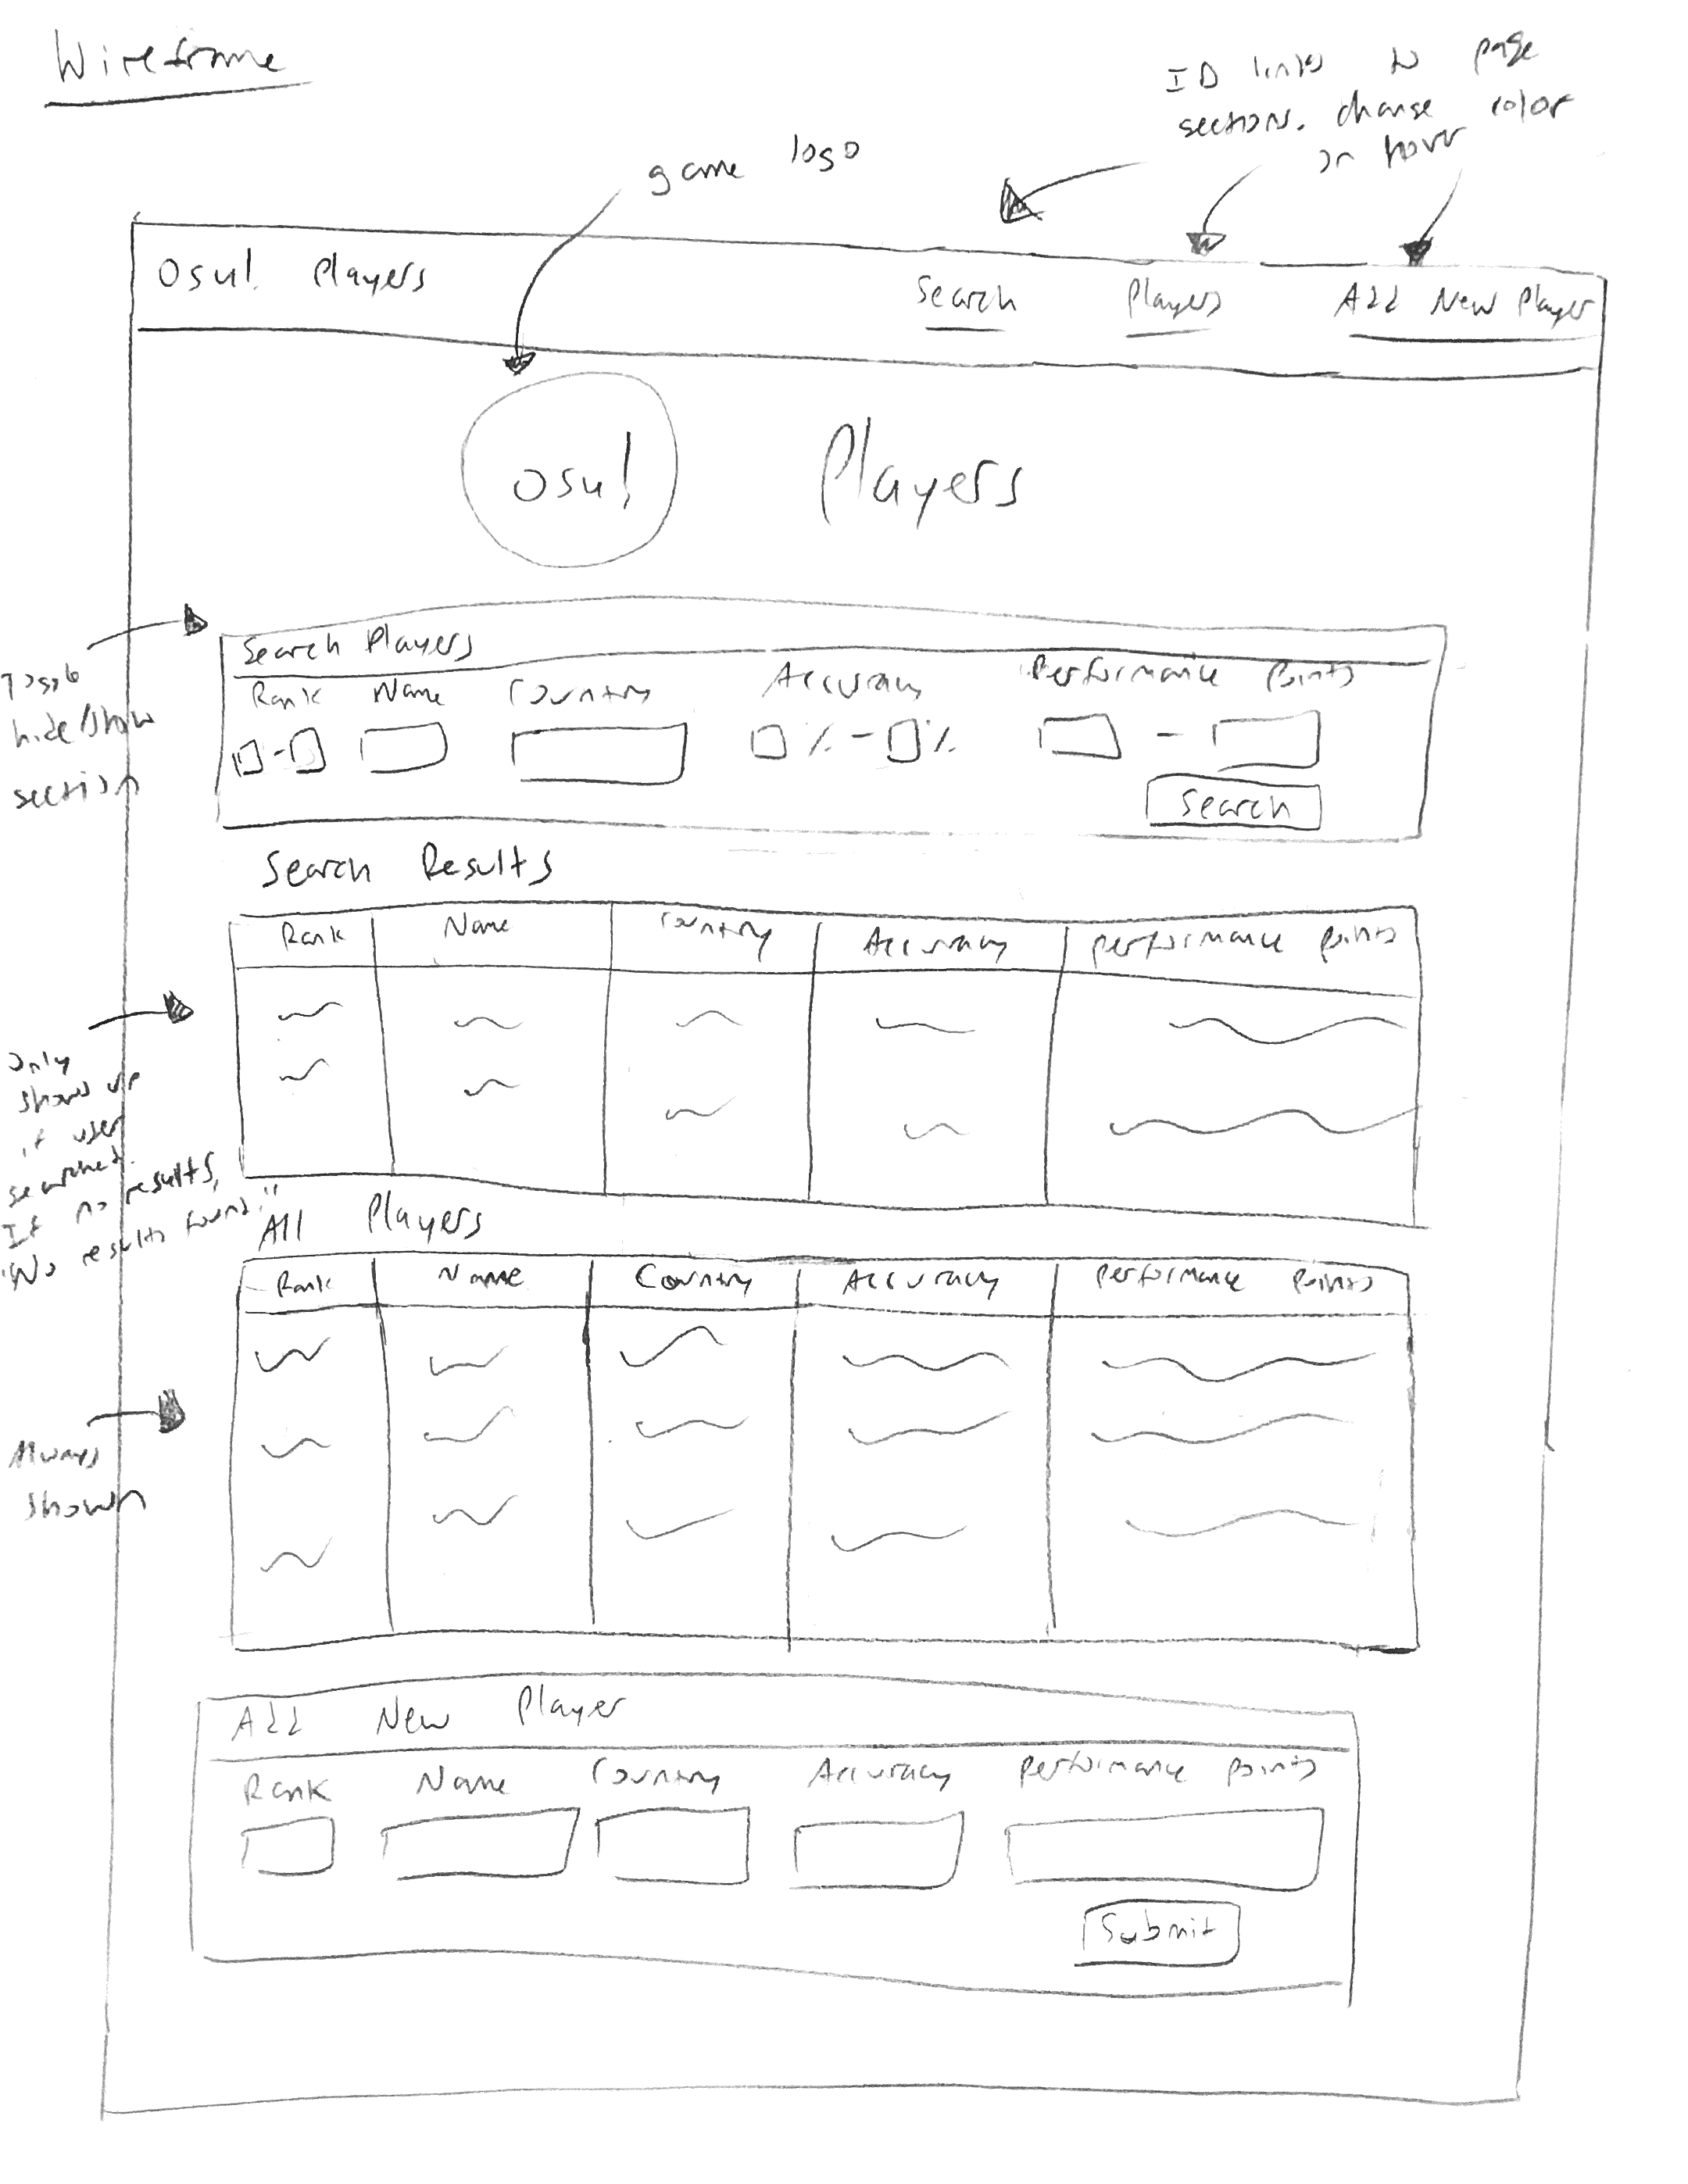 Wireframe
ID links to page
sections. change color
on hover
game logo
Osu! Players
Search Players Add New Player
osu! Players
Toggle
hide/show
section
Search Players
Rank Name Country Accuracy Performance Points
- % - % -
Search
Search Results
Rank Name Country Accuracy performance points
Only
shows up
if user
searched.
If no results,
"No results found."
All Players
Rank Name Country Accuracy performance points
Always
shown
Add New Player
Rank Name Country Accuracy performance points
Submit